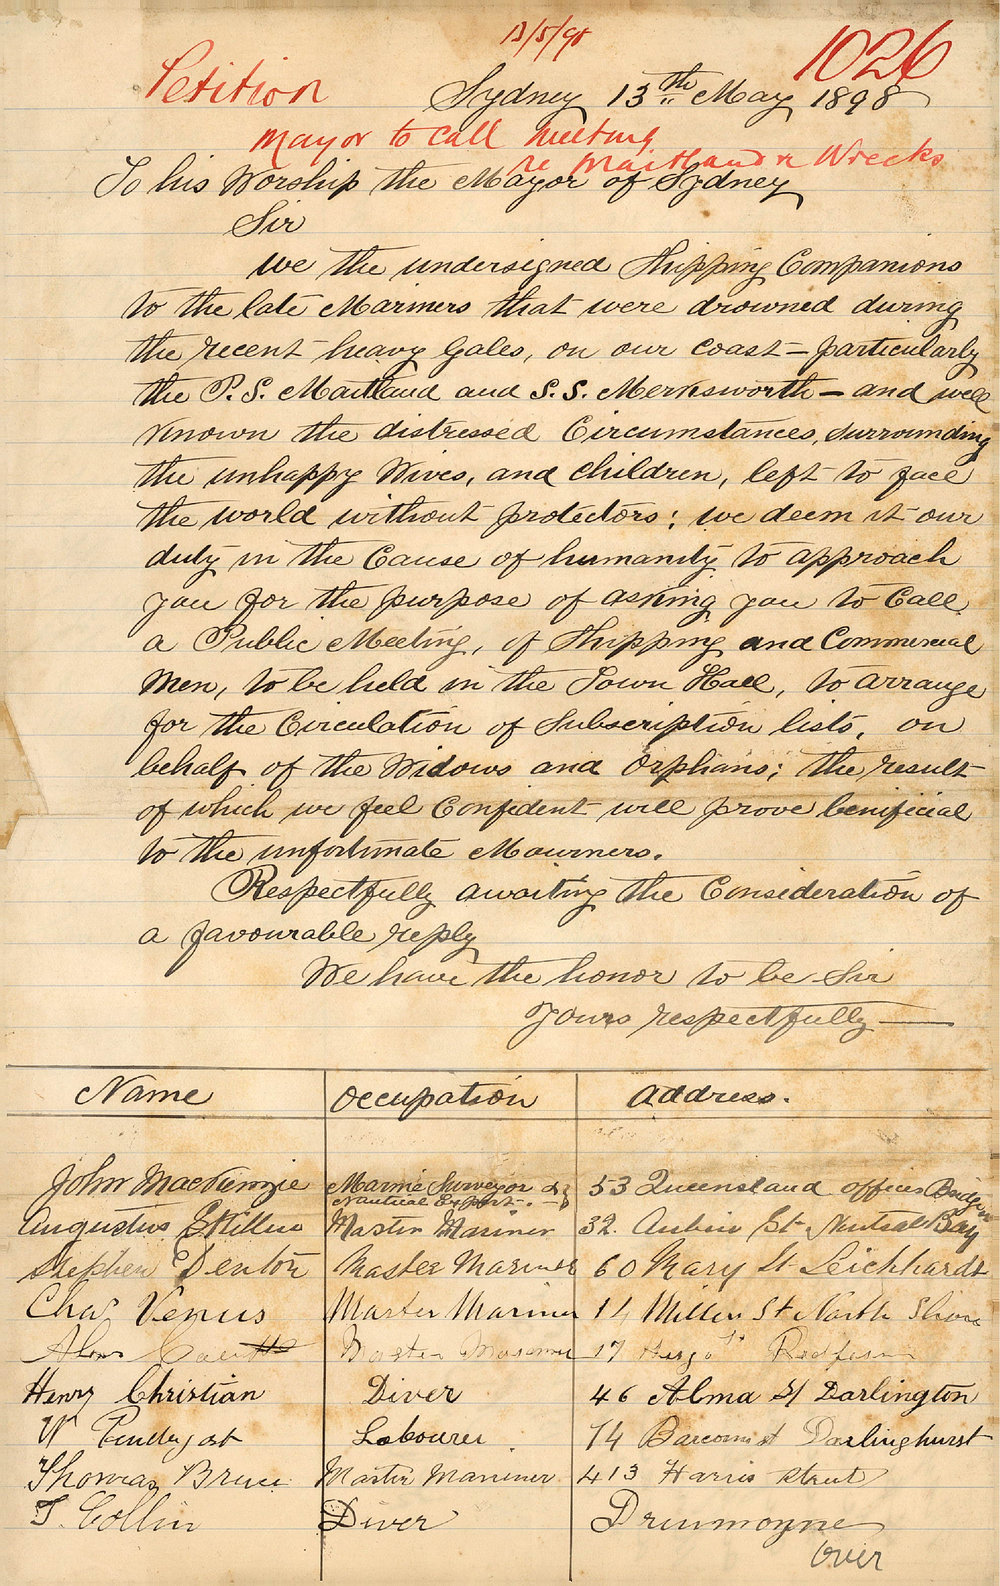 13/5/98
1026
Petition
Sydney 13th May 1898
Mayor to call meeting
re Maitland Wrecks
To his Worship the Mayor of Sydney
Sir
We the undersigned Shipping Companions
to the late Mariners that were drowned during
the recent heavy Gales, on our coast - particularly
the P.S. Maitland and S.S. Merksworth - and well
known the distressed Circumstances, surrounding
the unhappy Wives, and children, left to face
the world without protectors; we deem it our
duty in the Cause of humanity to approach
you for the purpose of asking you to Call
a Public Meeting, of Shipping and Commercial
Men, to be held in the Town Hall, to arrange
for the Circulation of Subscription lists, on
behalf of the Widows and Orphans; the result
of which we feel Confident will prove benificial
to the unfortunate Mourners.
Respectfully awaiting the Consideration of
a favourable reply
We have the honor to be Sir
Yours respectfully
Name Occupation Address.
John MacKenzie Marine Surveyor & Nautical Expert 53 Queensland offices Bridge
Augustus Master Mariner 32 St Neutral Bay
Stephen Denton Master Mariner 60 Mary St Leichhardt
Chas Venus Master Mariner 14 Miller St North Shore
Master Mariner 17 Redfern
Henry Christian Diver 46 Alma St Darlington
W Labourer 74 Darlinghurst
Thomas Bruce Master Mariner 413 Harris Street
T. Collin Diver Drumoyne
Over